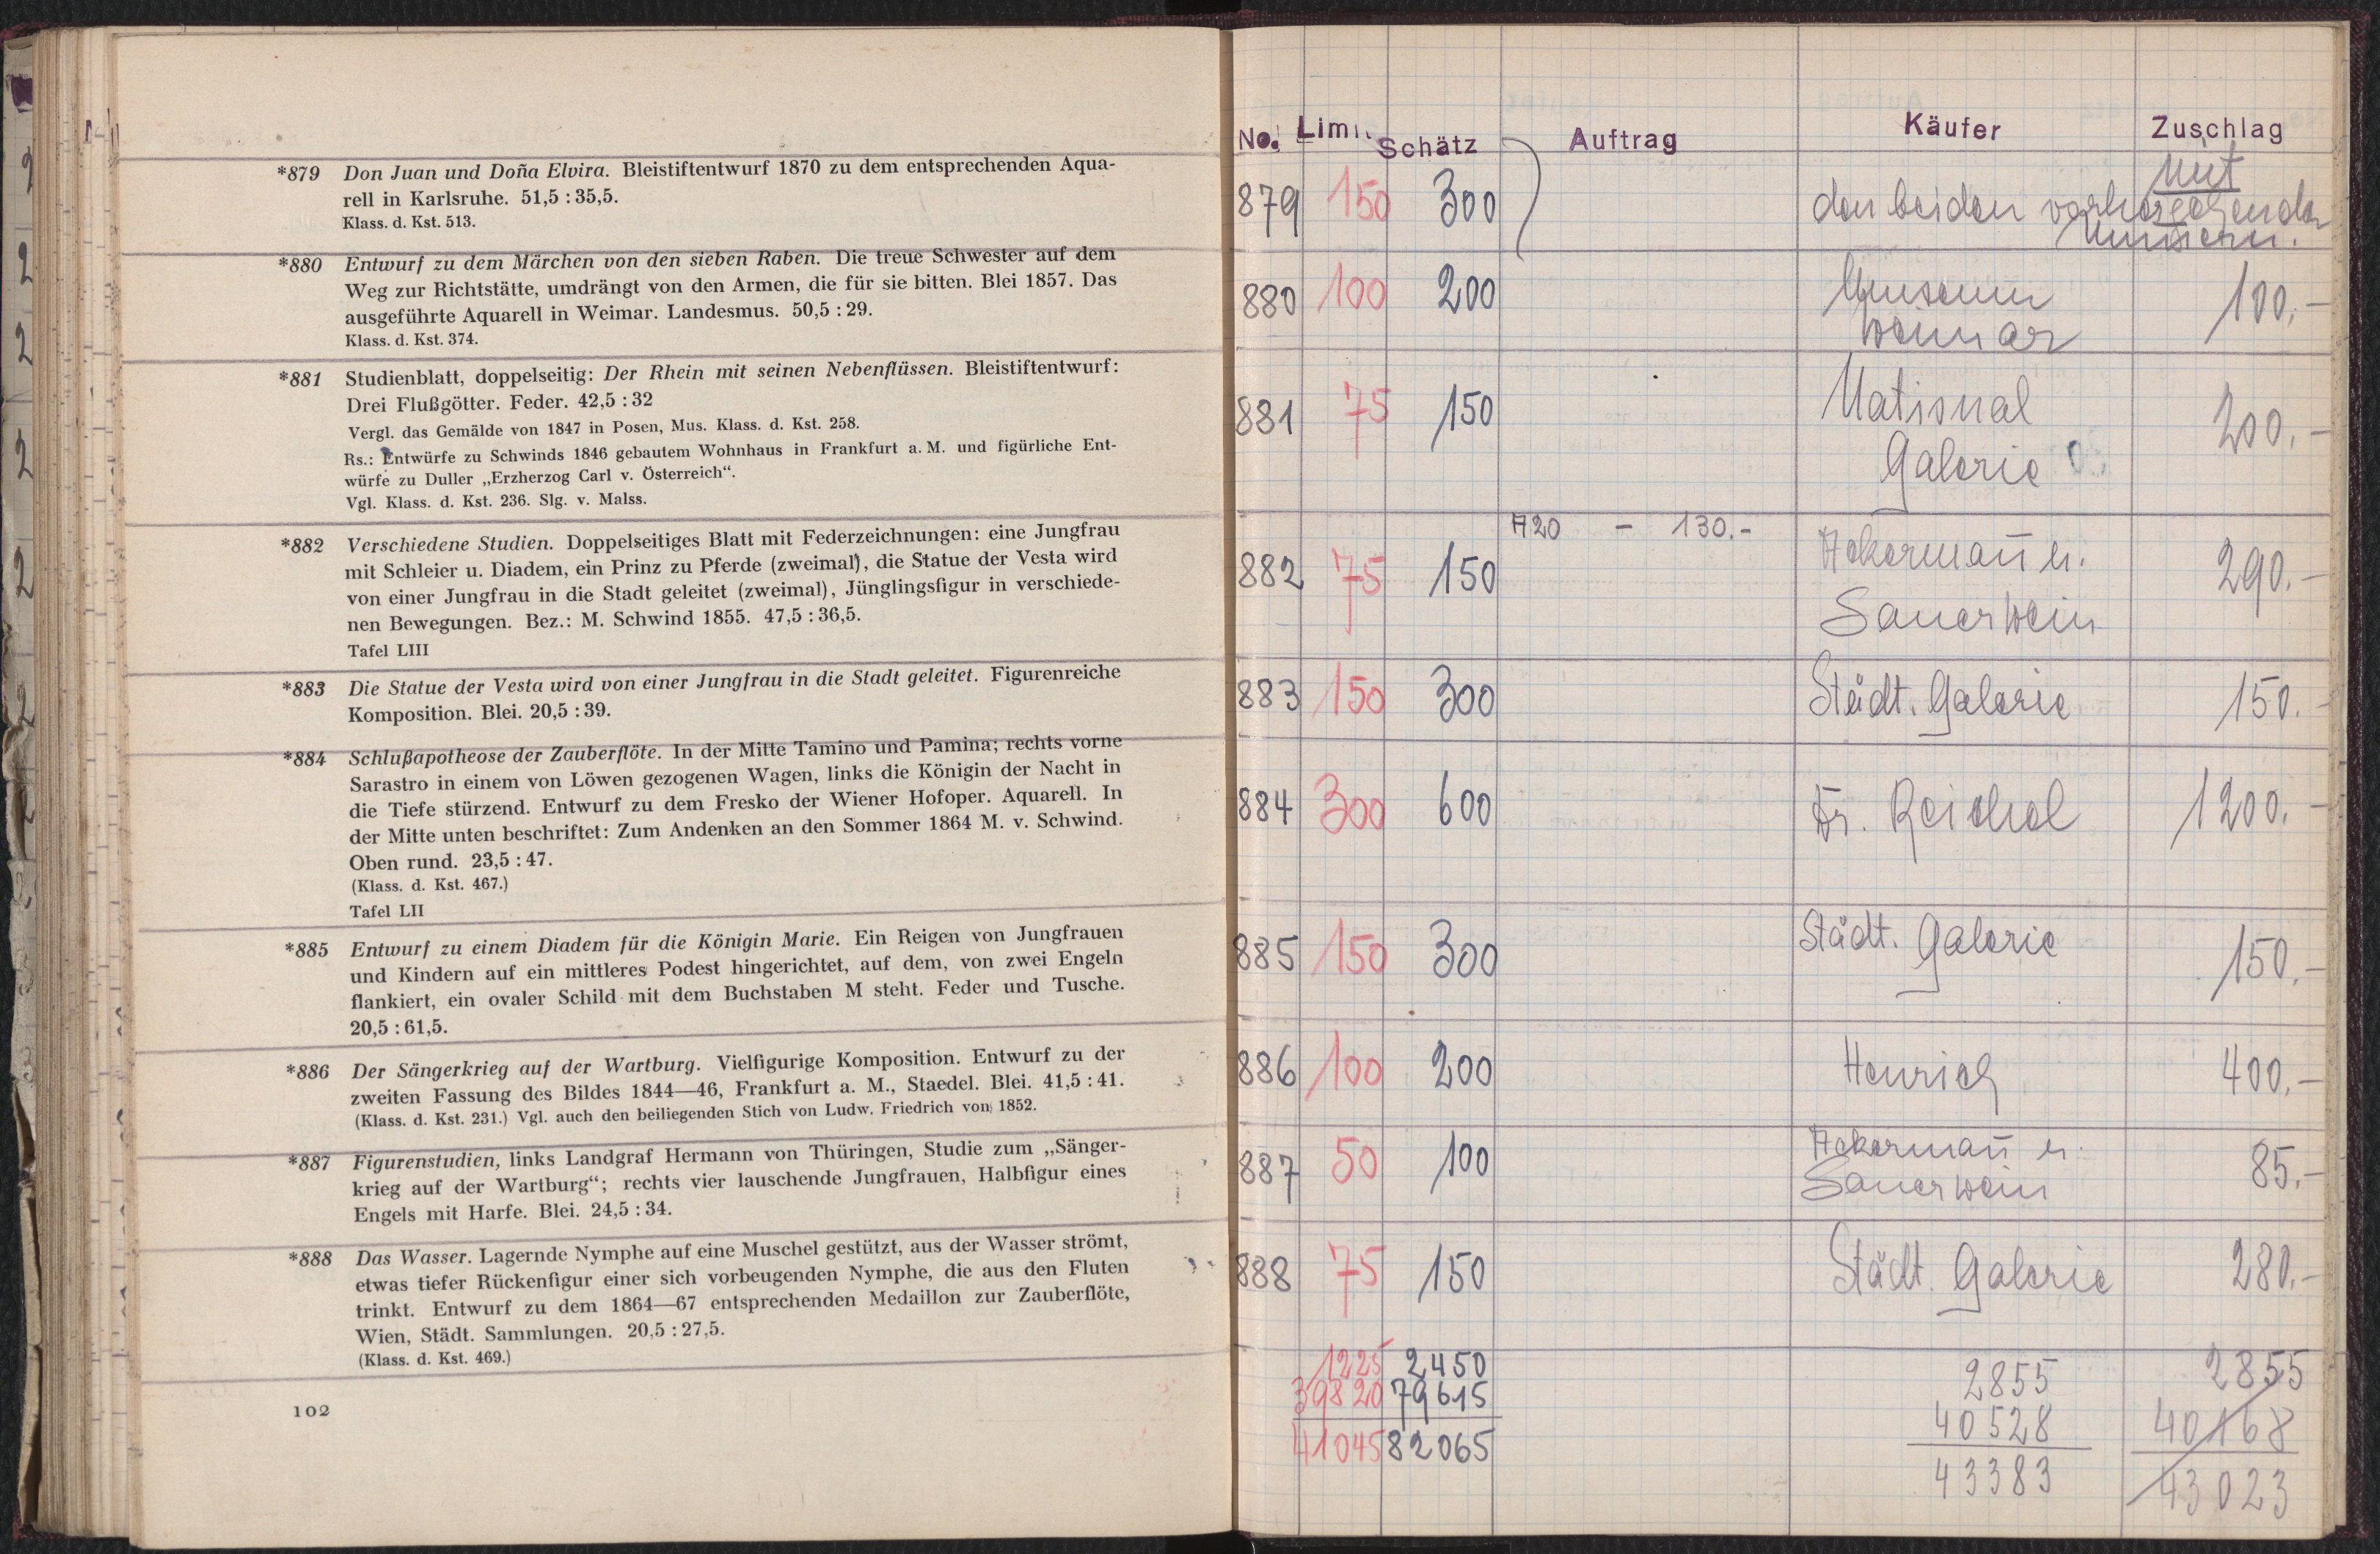 *879 Don Juan und Doña Elvira. Bleistiftentwurf 1870 zu dem entsprechenden Aqua-
rell in Karlsruhe. 51,5 : 35,5.
Klass. d. Kst. 513.
*880 Entwurf zu dem Märchen von den sieben Raben. Die treue Schwester auf dem
Weg zur Richtstätte, umdrängt von den Armen, die für sie bitten. Blei 1857. Das
ausgeführte Aquarell in Weimar. Landesmus. 50,5 : 29.
Klass. d. Kst. 374.
*881 Studienblatt, doppelseitig: Der Rhein mit seinen Nebenflüssen. Bleistiftentwurf:
Drei Flußgötter. Feder. 42,5 : 32
Vergl. das Gemälde von 1847 in Posen, Mus. Klass. d. Kst. 258.
Rs.: Entwürfe zu Schwinds 1846 gebautem Wohnhaus in Frankfurt a. M. und figürliche Ent-
würfe zu Duller „Erzherzog Carl v. Österreich“.
Vgl. Klass. d. Kst. 236. Slg. v. Malss.
*882 Verschiedene Studien. Doppelseitiges Blatt mit Federzeichnungen: eine Jungfrau
mit Schleier u. Diadem, ein Prinz zu Pferde (zweimal), die Statue der Vesta wird
von einer Jungfrau in die Stadt geleitet (zweimal), Jünglingsfigur in verschiede-
nen Bewegungen. Bez.: M. Schwind 1855. 47,5 : 36,5.
Tafel LIII
*883 Die Statue der Vesta wird von einer Jungfrau in die Stadt geleitet. Figurenreiche
Komposition. Blei. 20,5 : 39.
*884 Schlußapotheose der Zauberflöte. In der Mitte Tamino und Pamina; rechts vorne
Sarastro in einem von Löwen gezogenen Wagen, links die Königin der Nacht in
die Tiefe stürzend. Entwurf zu dem Fresko der Wiener Hofoper. Aquarell. In
der Mitte unten beschriftet: Zum Andenken an den Sommer 1864 M. v. Schwind.
Oben rund. 23,5 : 47.
(Klass. d. Kst. 467.)
Tafel LII
*885 Entwurf zu einem Diadem für die Königin Marie. Ein Reigen von Jungfrauen
und Kindern auf ein mittleres Podest hingerichtet, auf dem, von zwei Engeln
flankiert, ein ovaler Schild mit dem Buchstaben M steht. Feder und Tusche.
20,5 : 61,5.
*886 Der Sängerkrieg auf der Wartburg. Vielfigurige Komposition. Entwurf zu der
zweiten Fassung des Bildes 1844—46, Frankfurt a. M., Staedel. Blei. 41,5 : 41.
(Klass. d. Kst. 231.) Vgl. auch den beiliegenden Stich von Ludw. Friedrich von 1852.
*887 Figurenstudien, links Landgraf Hermann von Thüringen, Studie zum „Sänger-
krieg auf der Wartburg“; rechts vier lauschende Jungfrauen, Halbfigur eines
Engels mit Harfe. Blei. 24,5 : 34.
*888 Das Wasser. Lagernde Nymphe auf eine Muschel gestützt, aus der Wasser strömt,
etwas tiefer Rückenfigur einer sich vorbeugenden Nymphe, die aus den Fluten
trinkt. Entwurf zu dem 1864—67 entsprechenden Medaillon zur Zauberflöte,
Wien, Städt. Sammlungen. 20,5 : 27,5.
(Klass. d. Kst. 469.)
102
No. Limi. Schätz Auftrag Käufer Zuschlag
mit
879 150 300 den beiden vorhergehenden
Nummern.
880 100 200 Museum 100.-
Weimar
881 75 150 National 200.-
Galerie
A20 - 130.-
882 75 150 Ackermann u. 290.-
Sauerwein
883 150 300 Städt. Galerie 150.-
884 300 600 Dr. Reichel 1200.-
885 150 300 Städt. Galerie 150.-
886 100 200 Henrich 400.-
887 50 100 Ackermann u. 85.-
Sauerwein
888 75 150 Städt. Galerie 280.-
1225 2450 2855 2855
39820 79615 40528 40168
41045 82065 43383 43023